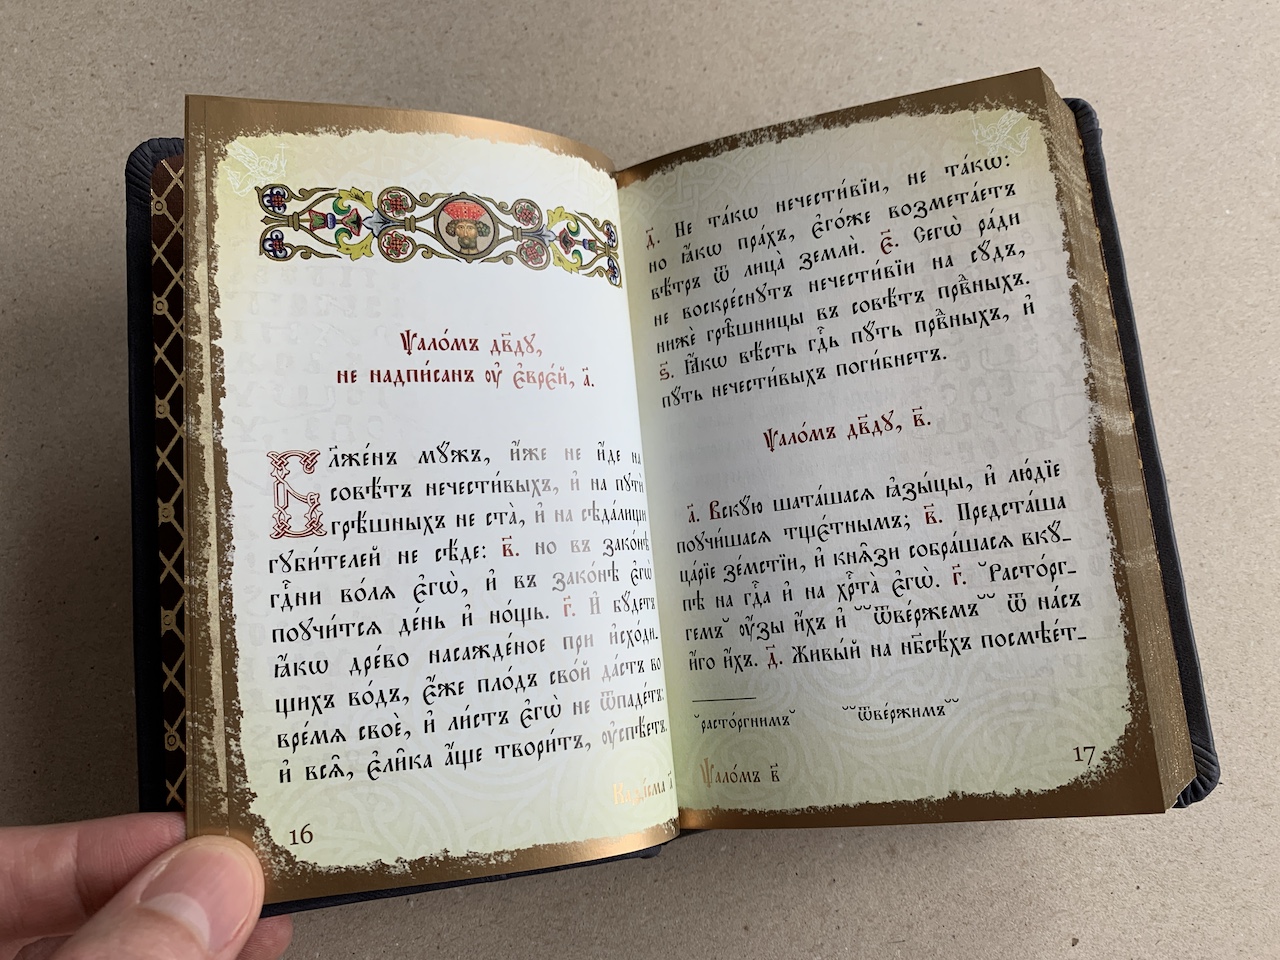 Ѱало́мъ дв҃ду,
не надпи́санъ ᲂу҆ є҆вре́й, а҃.
Бл҃же́нъ мꙋ́жъ, и҆́же не и҆́де на
совѣ́тъ нечести́выхъ, и҆ на пꙋтѝ
грѣ́шныхъ не ста̀, и҆ на сѣда́лищи
гꙋби́телей не сѣ́де: в҃. но въ зако́нѣ
гдⷭ҇ни во́лѧ є҆гѡ̀, и҆ въ зако́нѣ є҆гѡ̀
поꙋчи́тсѧ де́нь и҆ но́щь. г҃. И҆ бꙋ́детъ
ꙗ҆́кѡ дре́во насажде́ное при и҆схо́ди-
щихъ во́дъ, є҆́же пло́дъ сво́й да́стъ во
вре́мѧ своѐ, и҆ ли́стъ є҆гѡ̀ не ѿпаде́тъ:
и҆ всѧ̑, є҆ли̑ка а҆́ще твори́тъ, ᲂу҆спѣ́етъ.
Каѳі́сма а҃
16
д҃. Не та́кѡ нечести́вїи, не та́кѡ:
но ꙗ҆́кѡ пра́хъ, є҆го́же возмета́етъ
вѣ́тръ ѿ лица̀ землѝ. є҃. Сегѡ̀ ра́ди
не воскре́снꙋтъ нечести́вїи на сꙋ́дъ,
нижѐ грѣ̑шницы въ совѣ́тъ прв́ⷣныхъ.
ѕ҃. Ꙗ҆́кѡ вѣ́сть гдⷭ҇ь пꙋ́ть прв́ⷣныхъ, и҆
пꙋ́ть нечести́выхъ поги́бнетъ.
Ѱало́мъ дв҃ду, в҃.
а҃. Вскꙋ́ю шата́шасѧ ꙗ҆зы́цы, и҆ лю́дїе
поꙋчи́шасѧ тщє́тнымъ; в҃. Предста́ша
ца́рїе зе́мстїи, и҆ кнѧ̑зи собра́шасѧ вкꙋ́-
пѣ на гдⷭ҇а и҆ на хрⷭ҇та̀ є҆гѡ̀. г҃. ˘Расто́рг-
гемъ˘ ᲂу҆́зы и҆́хъ и҆ ˘˘ѿве́ржемъ˘˘ ѿ на́съ
и҆́го и҆́хъ. д҃. Живы́й на нб҃сѣ́хъ посмѣе́т-
˘расто́ргнимъ˘ ˘˘ѿве́ржимъ˘˘
Ѱало́мъ в҃
17